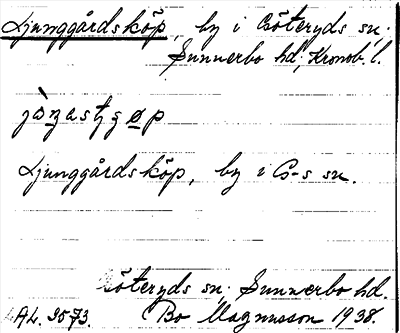 Ljunggårdsköp, by i Göteryds sn;
Sunnerbo hd; Kronob. l.
Ljunggårdsköp, by i G-s sn.
Göteryds sn; Sunnerbo hd.
AL. 3573. Bo Magnusson 1938.